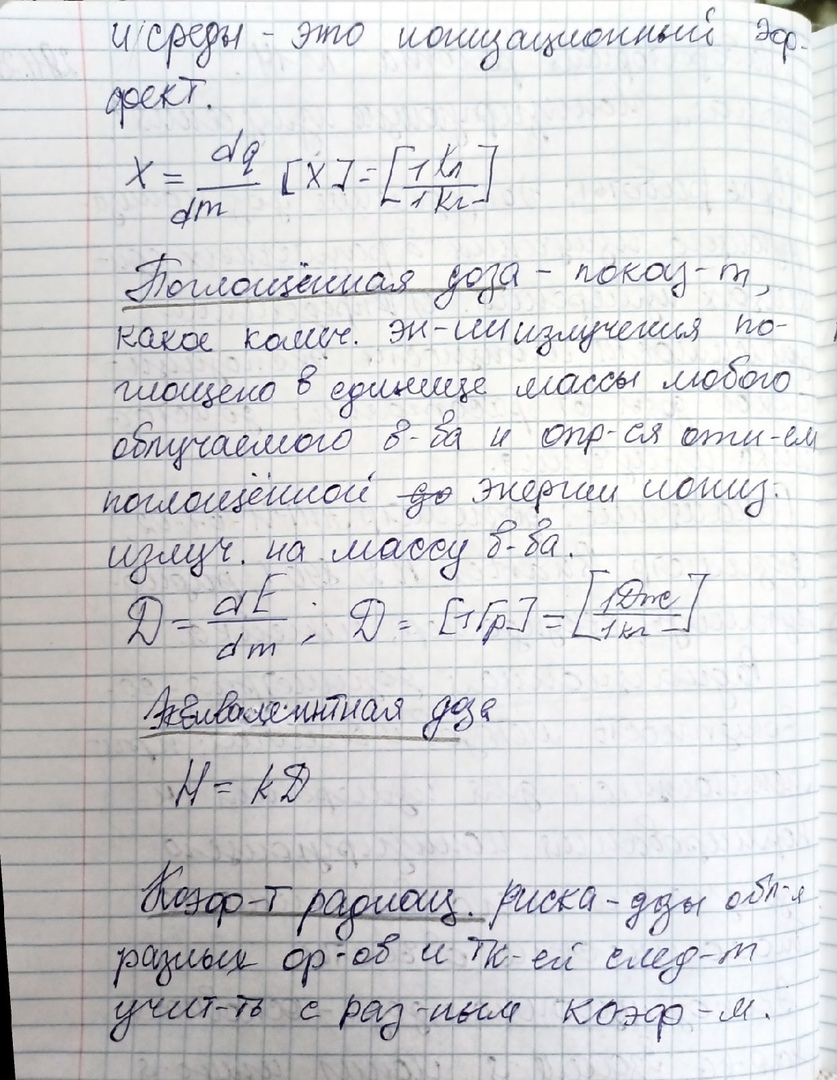 и среды - это ионизационный эф-
фект.
X = dq/dm [X] = [1 Кл/1 кг]
Поглощённая доза - показ-т,
какое колич. эн-ии излучения по-
глощено в единице массы любого
облучаемого в-ва и опр-ся отн-ем
поглощённой до энергии иониз.
излуч. на массу в-ва.
Д = dE/dm ; Д = [1 Гр] = [1 Дж/1 кг]
Эквивалентная доза
H = kД
Коэф-т радиац. риска - дозы обл-я
разных ор-ов и тк-ей след-т
учит-ть с раз-ным коэф-м.